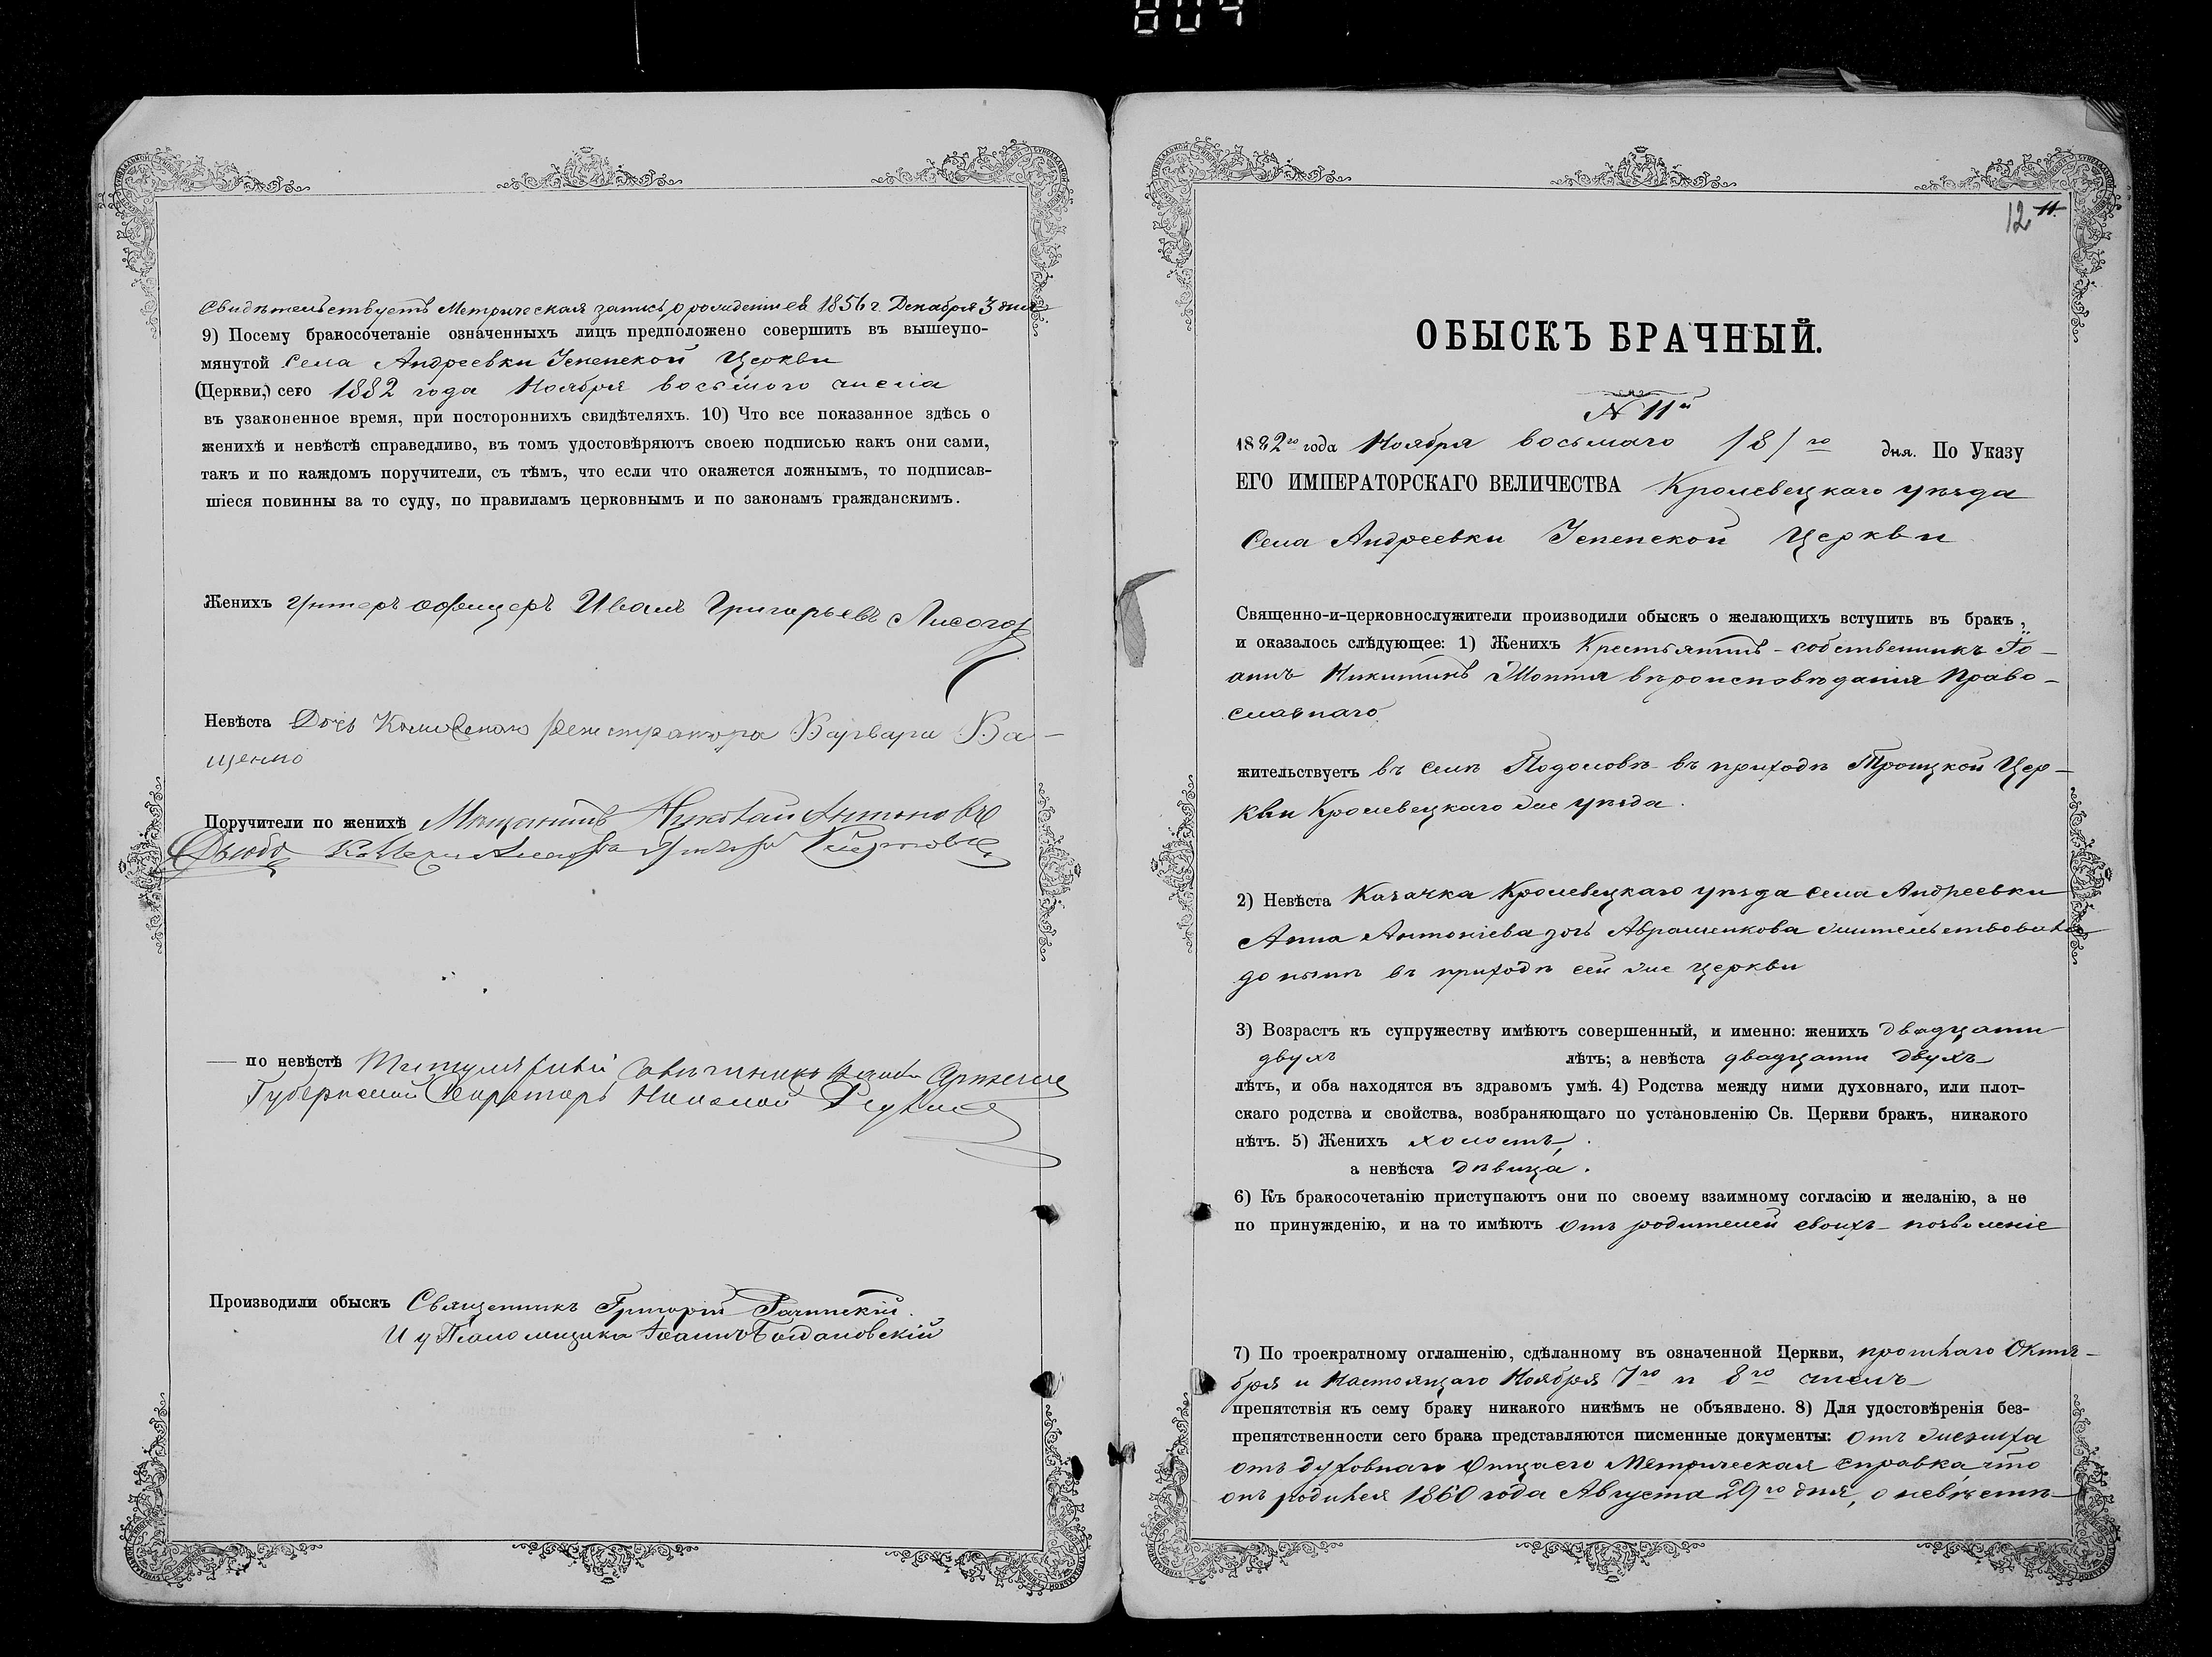 Свидѣтельствуетъ Метрическая запись о рожденіи ея 1856 г. Декабря 3 дня
9) Посему бракосочетаніе означенныхъ лицъ предположено совершить въ вышеупо-
мянутой Села Андреевки Успенской Церкви
(Церкви,) сего 1882 года Ноября восьмого числа
въ узаконенное время, при постороннихъ свидѣтеляхъ. 10) Что все показанное здѣсь о
женихѣ и невѣстѣ справедливо, въ томъ удостовѣряютъ своею подписью какъ они сами,
такъ и по каждомъ поручители, съ тѣмъ, что если что окажется ложнымъ, то подписав-
шіеся повинны за то суду, по правиламъ церковнымъ и по законамъ гражданскимъ.
Женихъ Унтеръ офицеръ Иванъ Григорьевъ Лисогор
Невѣста Дочь Регистратора Варвара Ва-
щенко
Поручители по женихѣ Мещанинъ Николай Антоновъ
— по невѣстѣ Титулярный Совѣтникъ
Губернский Секретарь Николай
Производили обыскъ Священникъ Григорій Рачинскій.
И у Псаломщика Іоаннъ Богдановскій
12 11.
ОБЫСКЪ БРАЧНЫЙ.
N 11й
1882го года Ноября восьмаго /8/го дня. По Указу
ЕГО ИМПЕРАТОРСКАГО ВЕЛИЧЕСТВА Кролевецкаго уѣзда
Села Андреевки Успенской Церкви
Священно-и-церковнослужители производили обыскъ о желающихъ вступить въ бракъ,
и оказалось слѣдующее: 1) Женихъ Крестьянинъ-собственникъ Іо-
аннъ Никитинъ вѣроисповѣданія Право-
славнаго
жительствуетъ въ селѣ Подоловѣ въ приходѣ Троицкой Цер-
кви Кролевецкаго же уѣзда.
2) Невѣста Казачка Кролевецкаго уѣзда села Андреевки
Анна Антоніева дочь Авраменкова жительствовала
до нынѣ въ приходѣ сей же церкви
3) Возрастъ къ супружеству имѣютъ совершенный, и именно: женихъ двадцати
двухъ лѣтъ; а невѣста двадцати двухъ
лѣтъ, и оба находятся въ здравомъ умѣ. 4) Родства между ними духовнаго, или плот-
скаго родства и свойства, возбраняющаго по установленію Св. Церкви бракъ, никакого
нѣтъ. 5) Женихъ холостъ,
а невѣста дѣвица.
6) Къ бракосочетанію приступаютъ они по своему взаимному согласію и желанію, а не
по принужденію, и на то имѣютъ отъ родителей своихъ позволеніе
7) По троекратному оглашенію, сдѣланному въ означенной Церкви, прошлаго Октя-
бря и настоящаго Ноября 7го и 8го числъ
препятствія къ сему браку никакого никѣмъ не объявлено. 8) Для удостовѣренія без-
препятственности сего брака представляются писменные документы: отъ жениха
отъ духовнаго Отца его Метрическая справка что
онъ родился 1860 года Августа 29го дня, о невѣстѣ